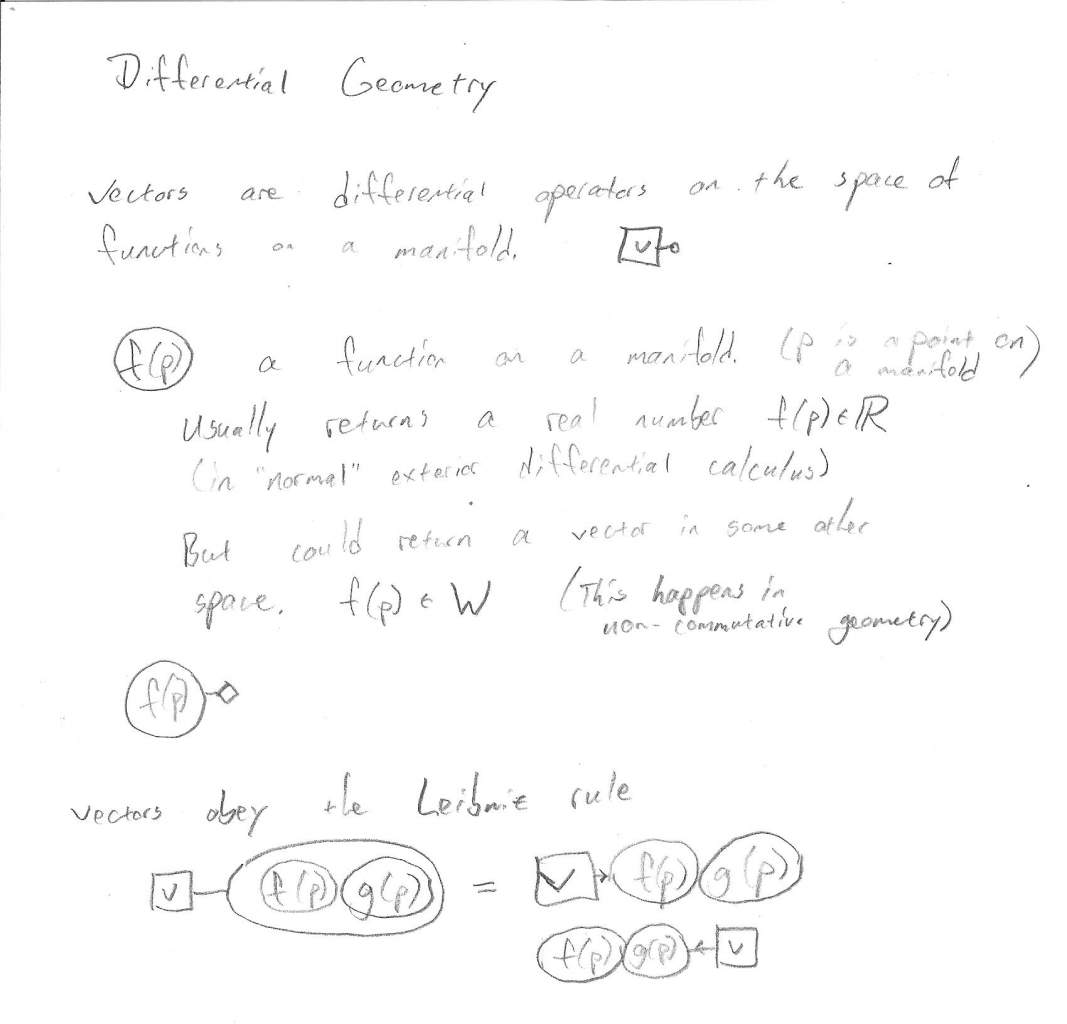 Differential Geometry
Vectors are differential operators on the space of
functions on a manifold. v
f(p) a function on a manifold. (p is a point on
a manifold)
Usually returns a real number f(p) ∈ ℝ
(in "normal" exterior differential calculus)
But could return a vector in some other
space. f(p) ∈ W (This happens in
non-commutative geometry)
f(p)
vectors obey the Leibniz rule
v f(p) g(p) = v f(p) g(p)
f(p) g(p) v